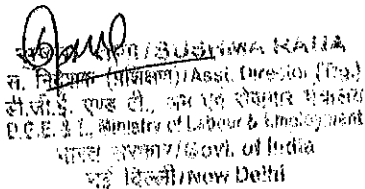 /SUSHMA RATRA
स. निदेशक (प्रशिक्षण)/Asst. Director (Trg.)
डी.जी.ई. एण्ड टी., श्रम एवं रोजगार मंत्रालय
D.G.E. & T., Ministry of Labour & Employment
भारत सरकार/Govt. of India
नई दिल्ली/New Delhi